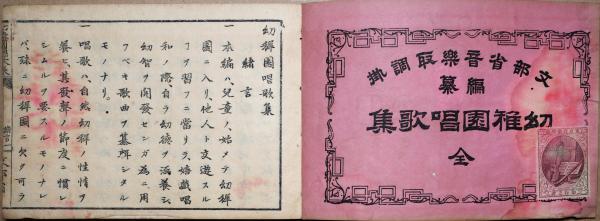 文部省音樂取調掛
編纂
幼稚園唱歌集
全
幼穉園唱歌集
緒言
一本編ハ、兒童ノ、始メテ幼穉
園ニ入リ、他人ト交遊スル
コトヲ習フニ當リテ、嬉戯唱
和ノ際、自ラ幼徳ヲ涵養シ、
幼智ヲ開發センガ為ニ、用
フベキ歌曲ヲ纂輯シタル
モノナリ。
一唱歌ハ、自然幼穉ノ性情ヲ
養ヒ、其發聲ノ節度ニ慣レ
シムルヲ要スルモノナレ
バ、殊ニ幼穉園ニ欠ク可ラ